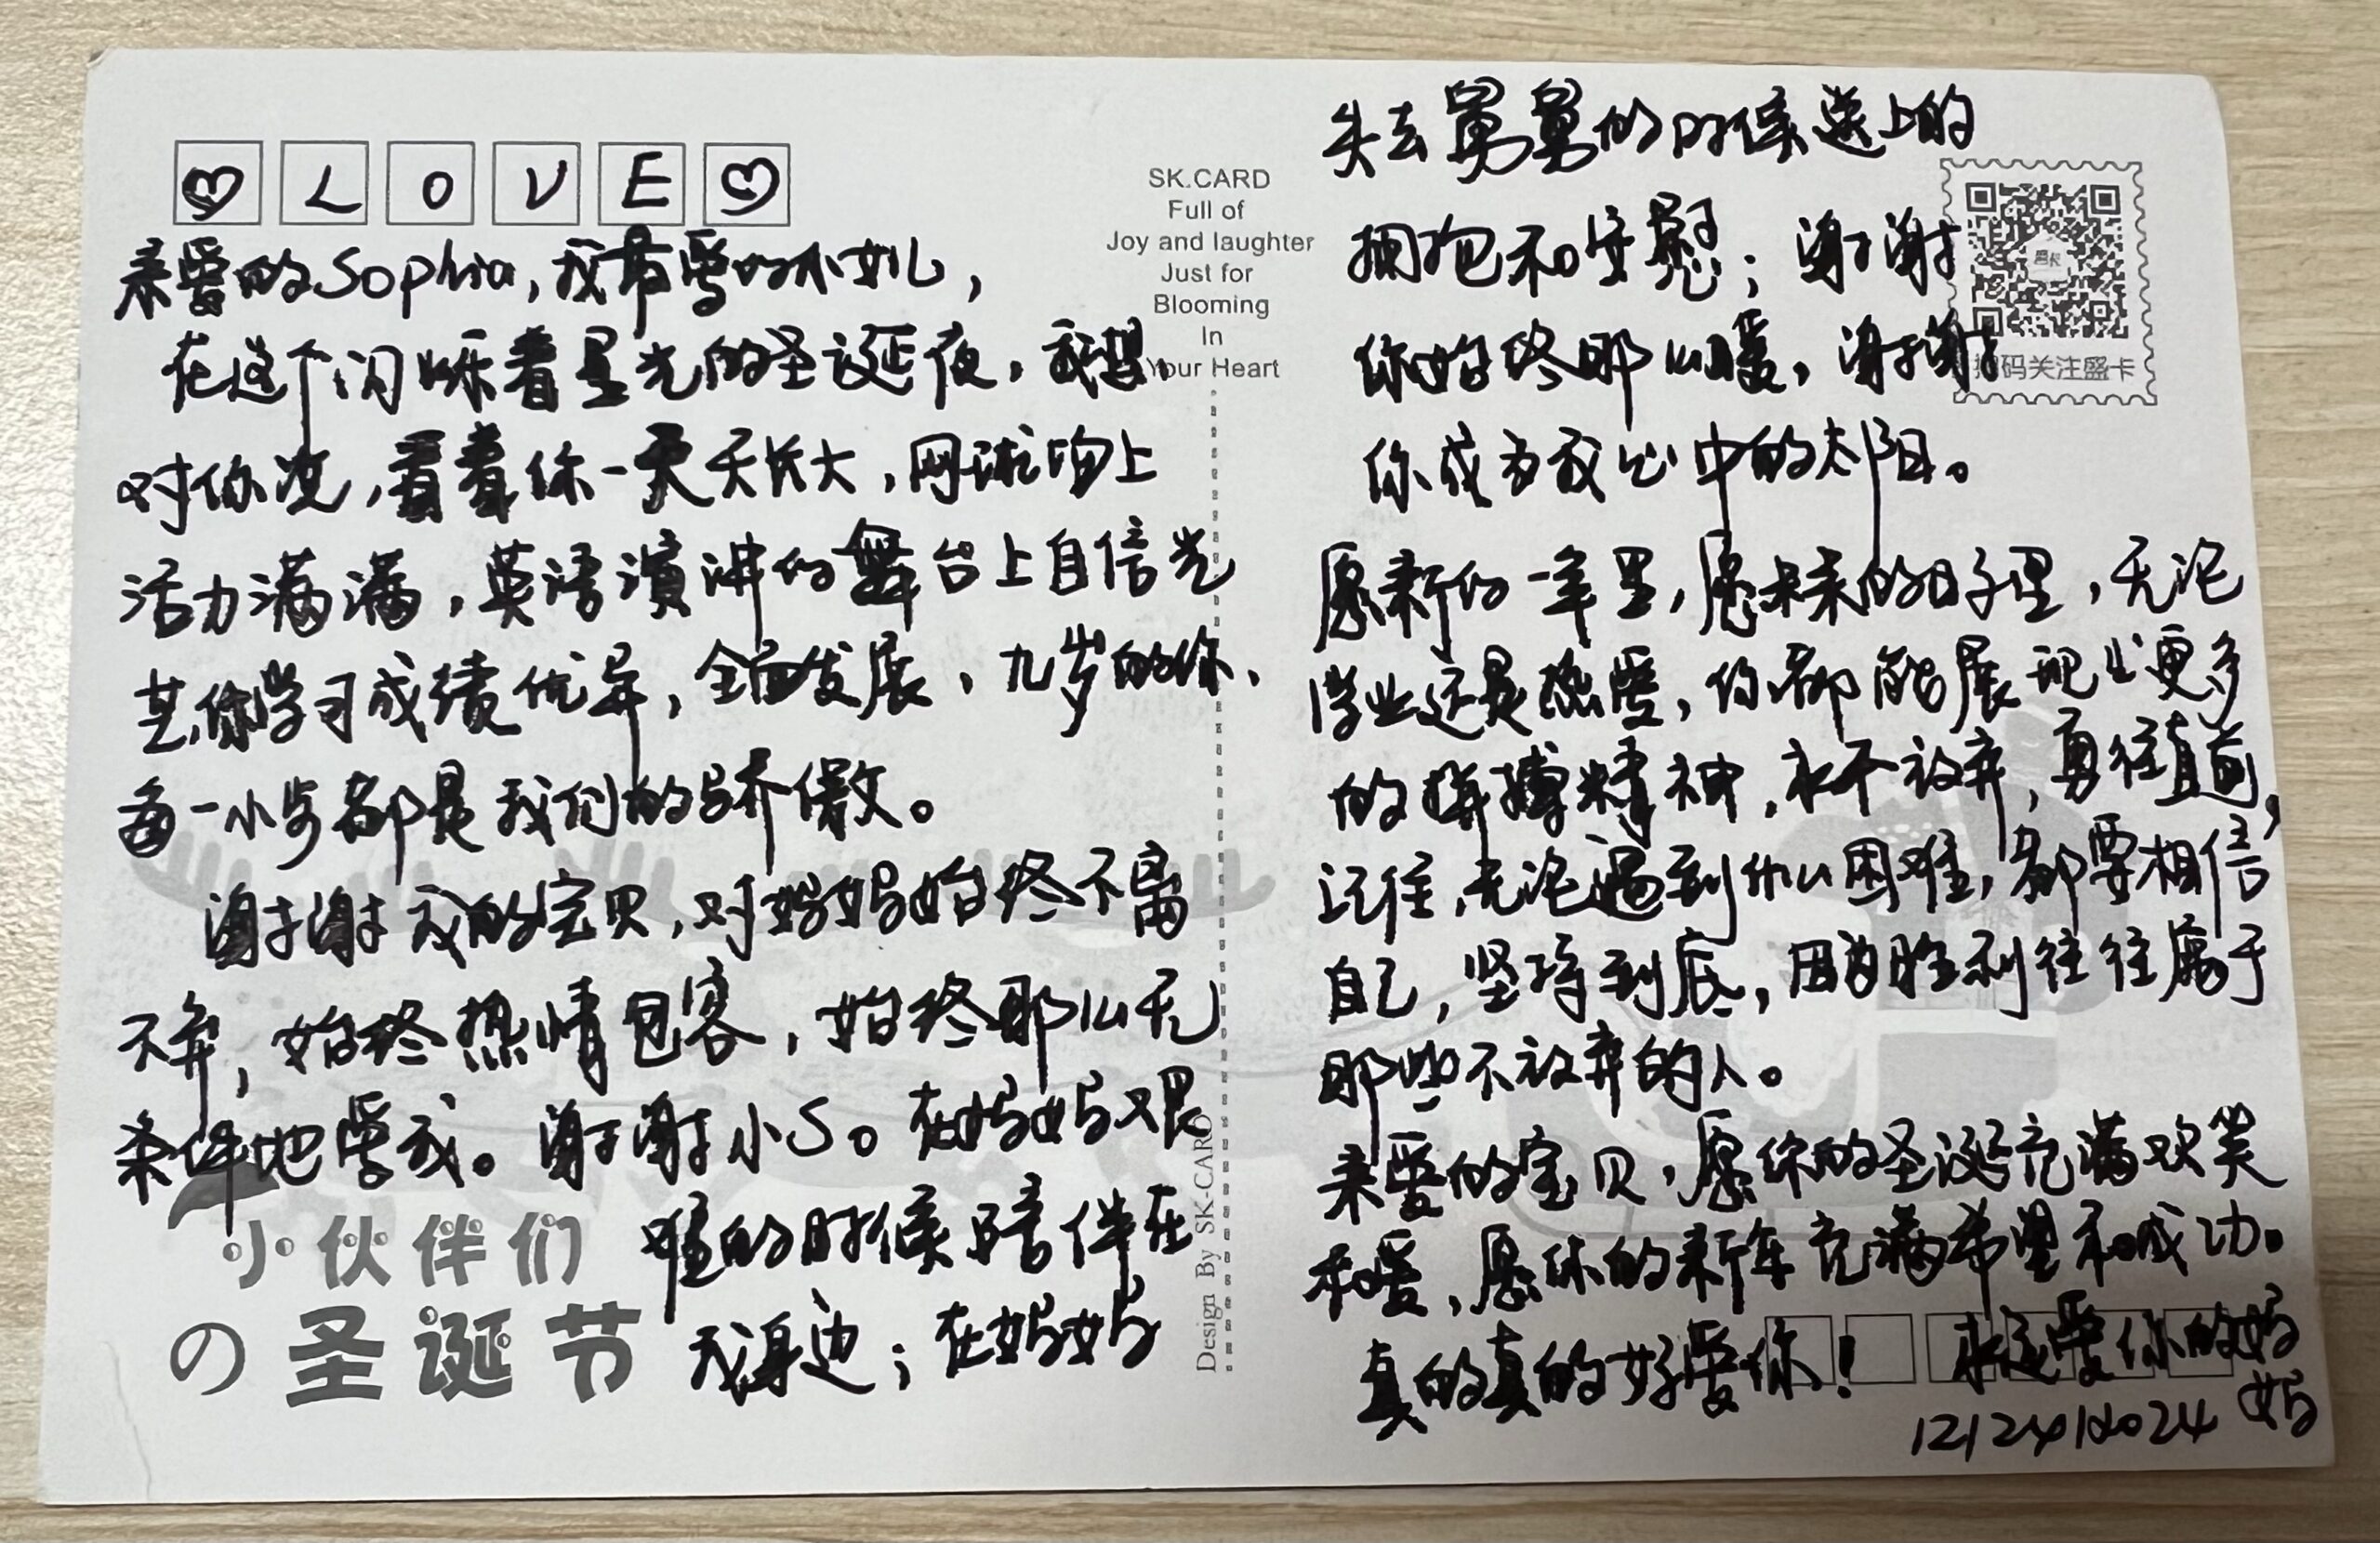 ♡ L O V E ♡
亲爱的Sophia，我最爱的小女儿，
在这个闪烁着星光的圣诞夜，我想
对你说，看着你一天天长大，网球场上
活力满满，英语演讲的舞台上自信光
芒，你学习成绩优异，全面发展，九岁的你、
每一小步都是我们的骄傲。
谢谢我的宝贝，对妈妈始终不离
不弃，始终热情包容，始终那么无
条件地爱我。谢谢小S。在妈妈艰
难的时候陪伴在
我身边；在妈妈
小伙伴们
の圣诞节
SK.CARD
Full of
Joy and laughter
Just for
Blooming
In
Your Heart
Design By SK-CARD
失去舅舅的时候送上的
拥抱和安慰；谢谢
你始终那么暖，谢谢
你成为我心中的太阳。
扫码关注盛卡
愿新的一年里，愿未来的日子里，无论
学业还是热爱，你都能展现出更多
的拼搏精神，永不放弃，勇往直前，
记住，无论遇到什么困难，都要相信
自己，坚持到底，因为胜利往往属于
那些不放弃的人。
亲爱的宝贝，愿你的圣诞充满欢笑
和爱，愿你的新年充满希望和成功。
真的真的好爱你！ 永远爱你的妈
妈
12/24/2024